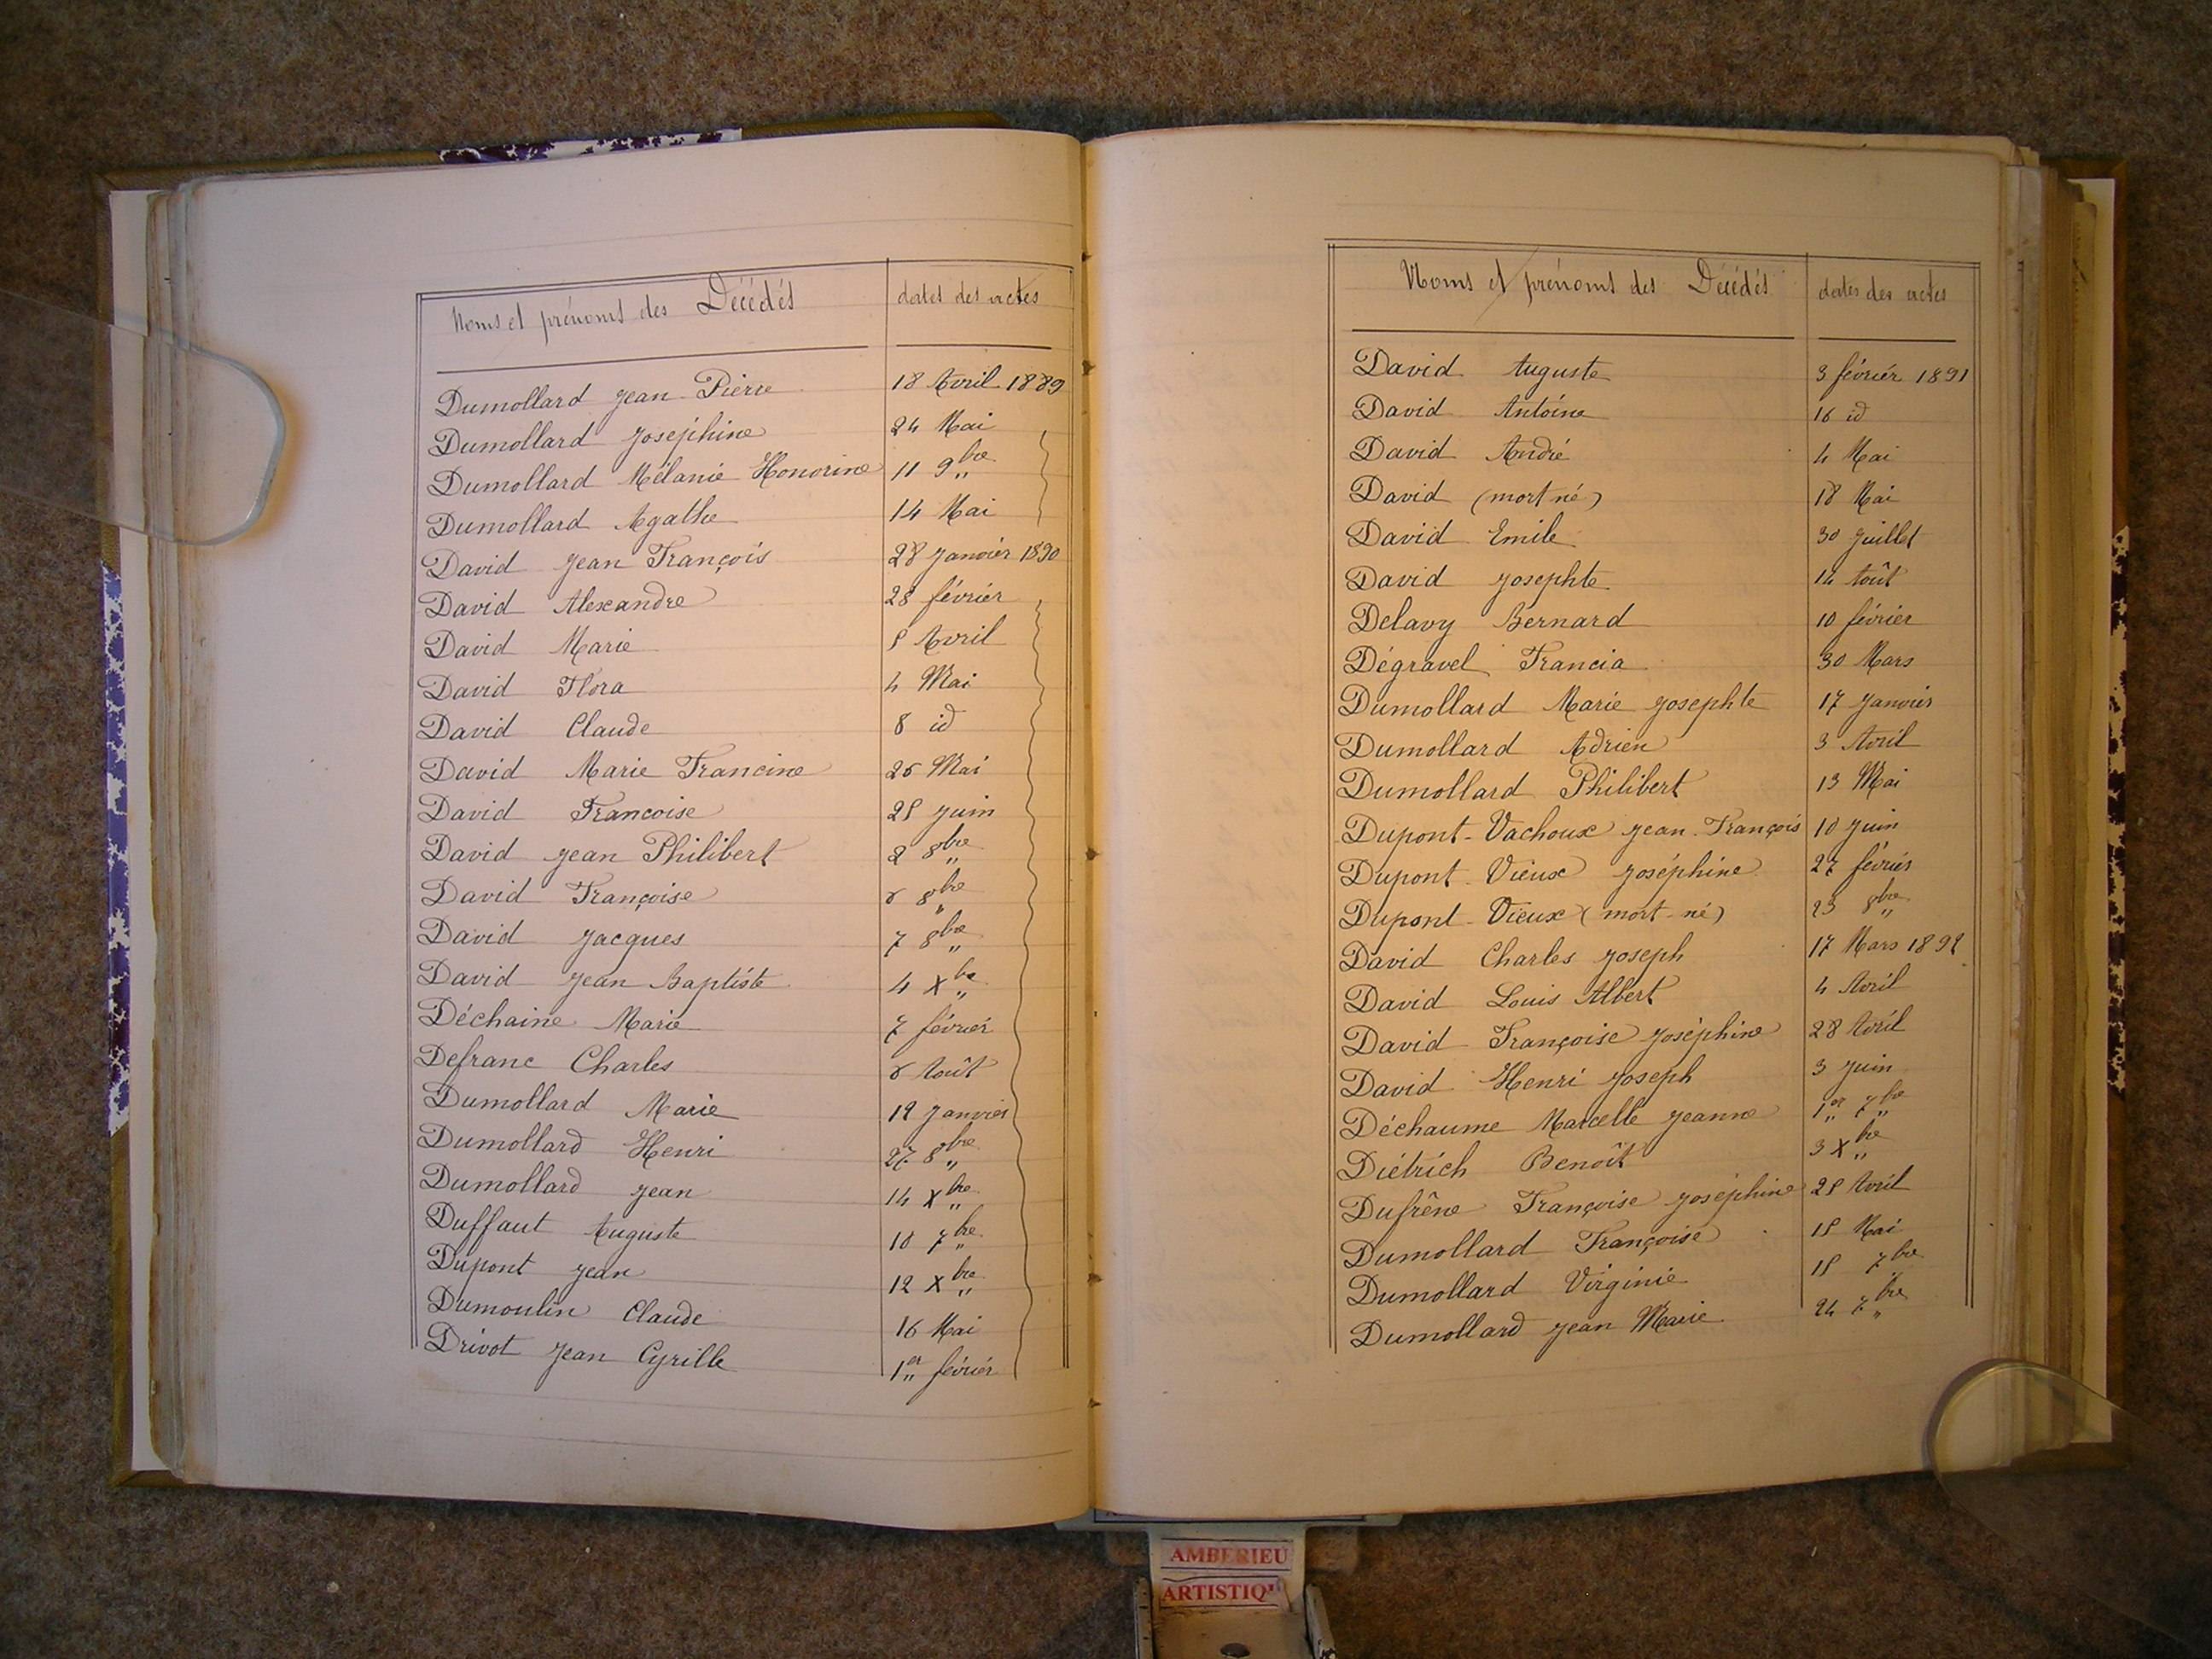 Noms et prénoms des Décédés dates des actes
Dumollard Jean-Pierre 18 Avril 1889
Dumollard Joséphine 24 Mai
Dumollard Mélanie Honorine 11 9bre
Dumollard Agathe 14 Mai
David Jean François 28 Janvier 1890
David Alexandre 28 février
David Marie 5 Avril
David Flora 4 Mai
David Claude 8 id
David Marie Francine 26 Mai
David Francoise 25 Juin
David Jean Philibert 2 8bre
David Françoise 6 8bre
David Jacques 7 8bre
David Jean Baptiste 4 Xbre
Déchaine Marie 7 février
Defranc Charles 6 Août
Dumollard Marie 12 Janvier
Dumollard Henri 27 8bre
Dumollard Jean 14 Xbre
Duffaut Auguste 10 7bre
Dupont Jean 12 Xbre
Dumoulin Claude 16 Mai
Drivot Jean Cyrille 1er février
Noms et prénoms des Décédés dates des actes
David Auguste 3 février 1891
David Antoine 16 id
David André 4 Mai
David (mort né) 18 Mai
David Emile 30 Juillet
David Josephte 14 Août
Delavy Bernard 10 février
Dégravel Francia 30 Mars
Dumollard Marie Josephte 17 Janvier
Dumollard Adrien 3 Avril
Dumollard Philibert 13 Mai
Dupont-Vachoux Jean-François 10 Juin
Dupont-Vieux Joséphine 27 février
Dupont-Vieux (mort-né) 23 8bre
David Charles Joseph 17 Mars 1892
David Louis Albert 4 Avril
David Françoise Joséphine 28 Avril
David Henri Joseph 3 Juin
Déchaume Marcelle Jeanne 1er 7bre
Diétrich Benoît 3 Xbre
Dufrêne Françoise Joséphine 25 Avril
Dumollard Françoise 15 Mai
Dumollard Virginie 15 7bre
Dumollard Jean Marie 24 7bre
AMBERIEU
ARTISTIQ